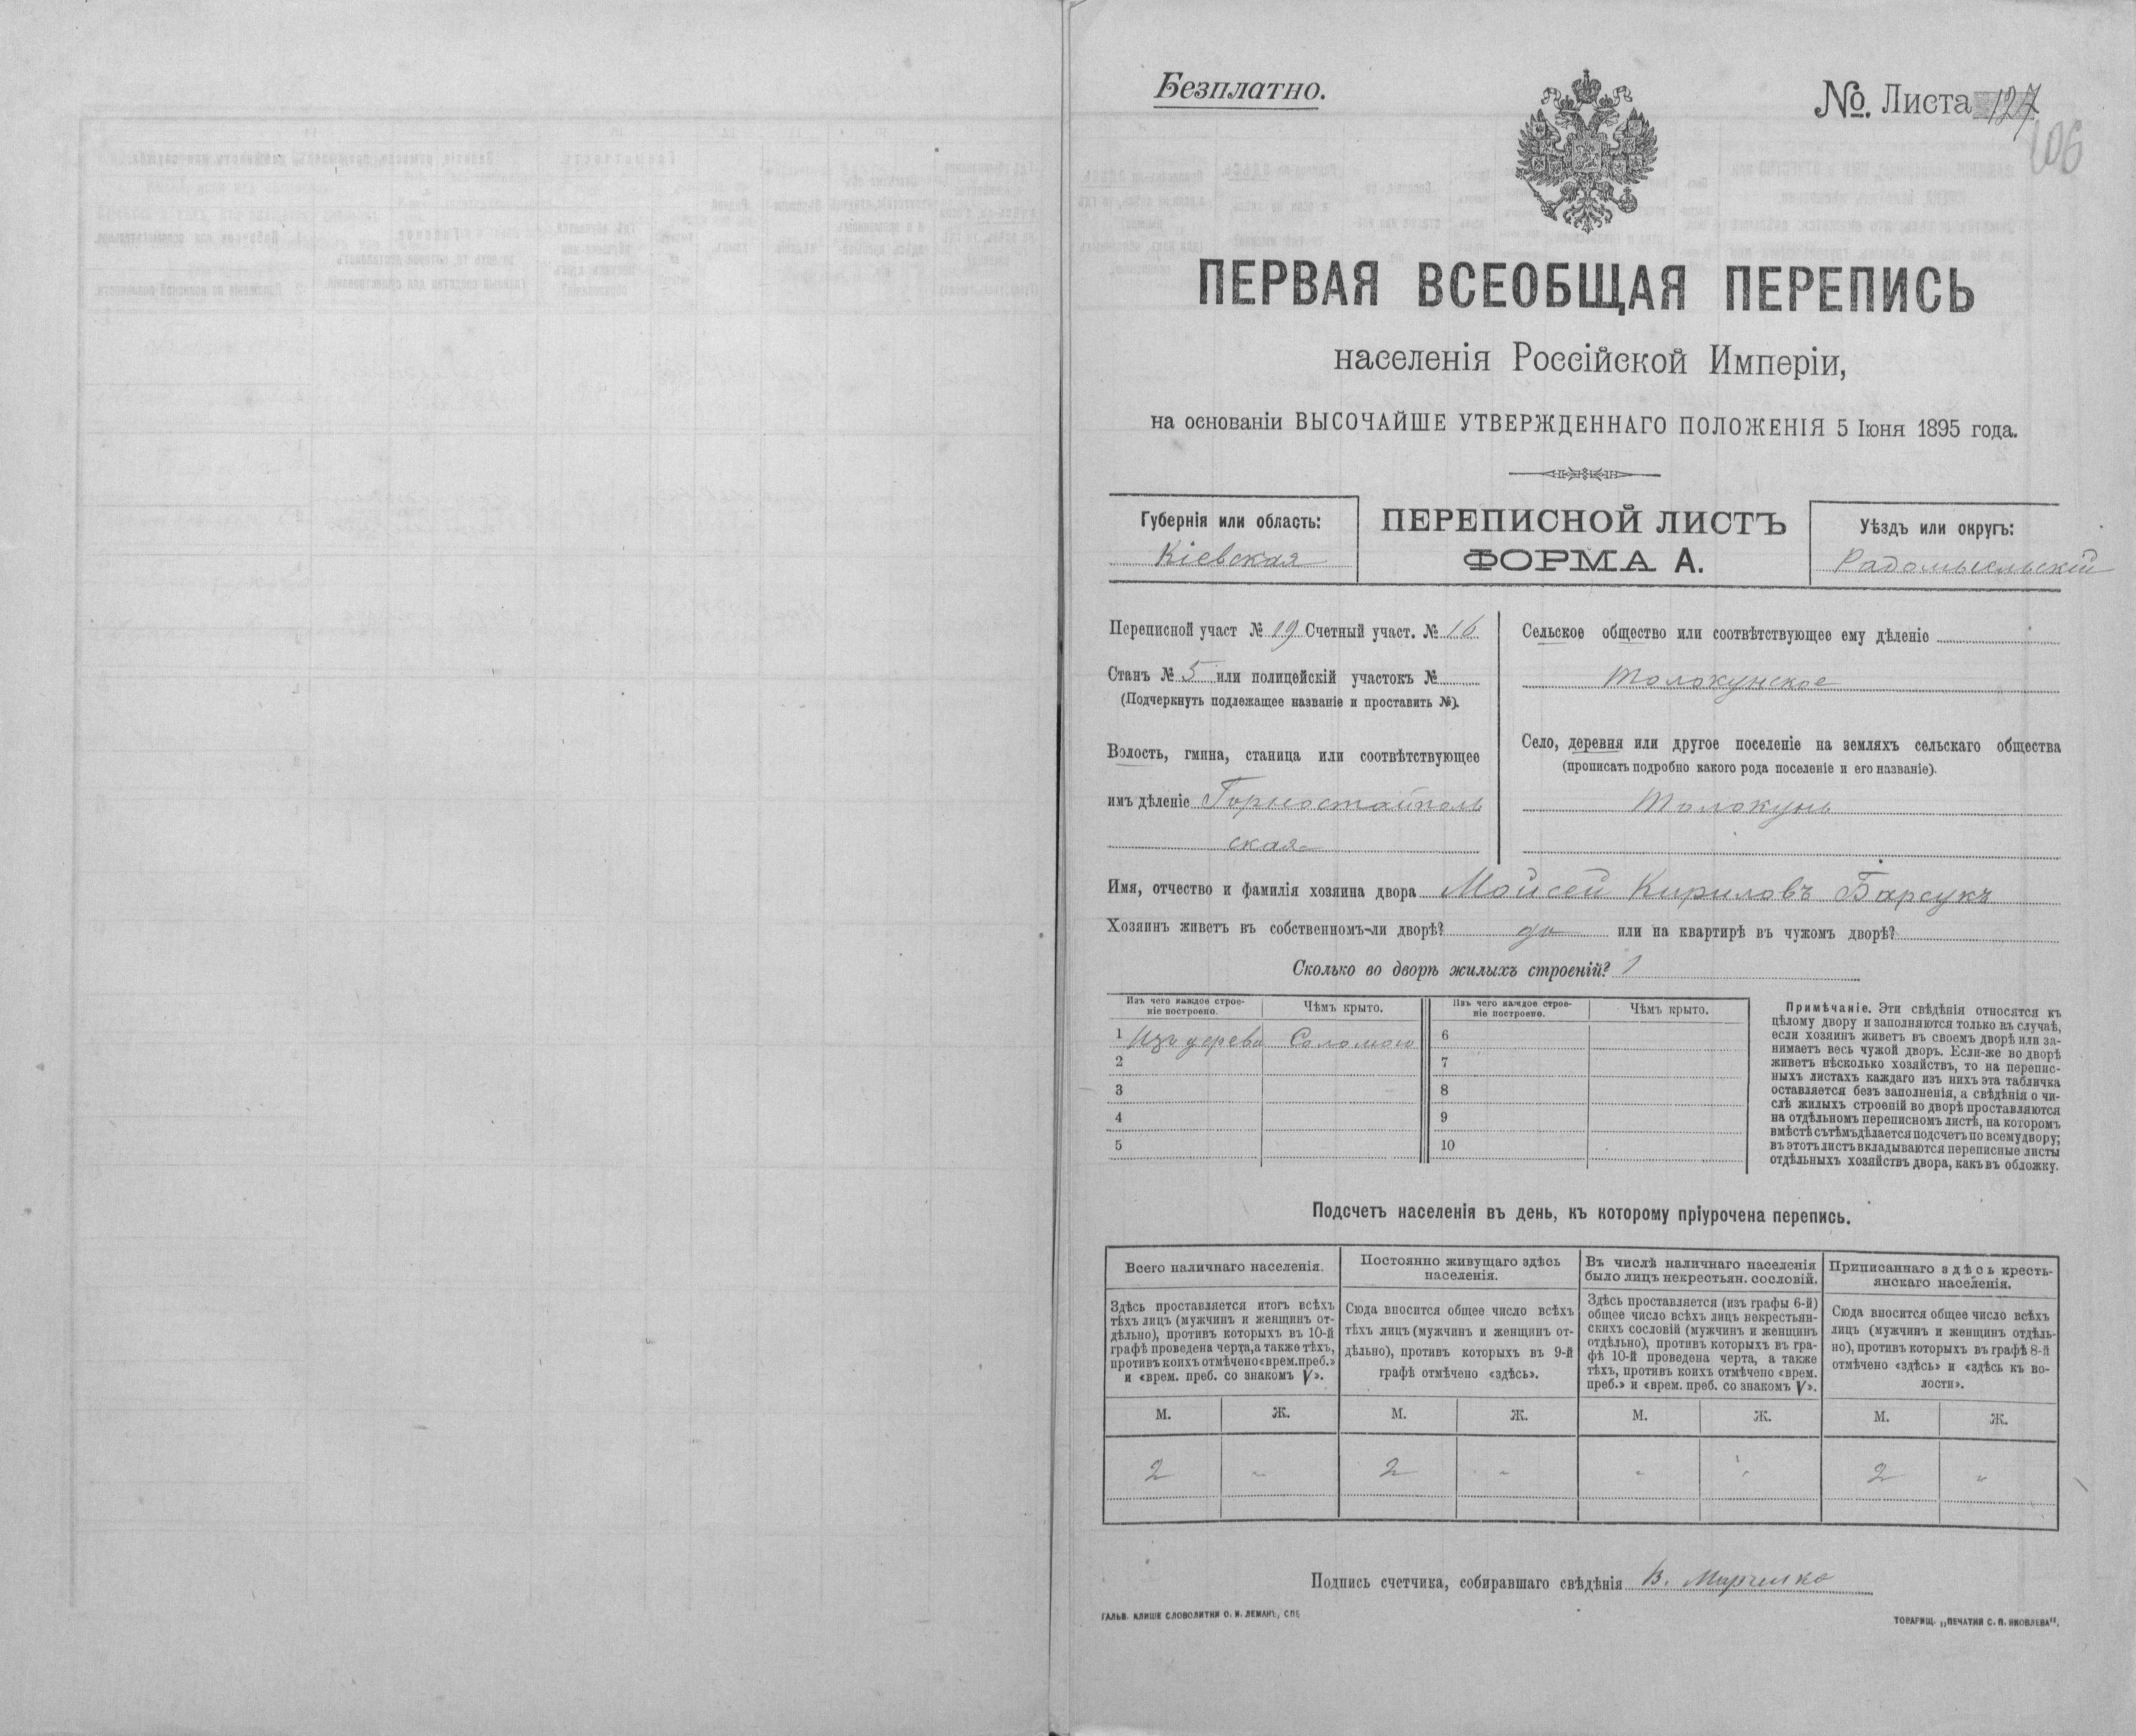 Безплатно.
№. Листа 127
106
ПЕРВАЯ ВСЕОБЩАЯ ПЕРЕПИСЬ
населенія Россійской Имперіи,
на основаніи ВЫСОЧАЙШЕ УТВЕРЖДЕННАГО ПОЛОЖЕНІЯ 5 Іюня 1895 года.
Губернія или область:
Кіевская
ПЕРЕПИСНОЙ ЛИСТЪ
ФОРМА А.
Уѣздъ или округъ:
Радомысльскій
Переписной участ № 19 Счетный участ. № 16
Станъ № 5 или полицейскій участокъ №
(Подчеркнуть подлежащее названіе и проставить №).
Волость, гмина, станица или соотвѣтствующее
имъ дѣленіе Горностайполь
ская
Сельское общество или соотвѣтствующее ему дѣленіе
Толокунское
Село, деревня или другое поселеніе на земляхъ сельскаго общества
(прописать подробно какого рода поселеніе и его названіе).
Толокунь
Имя, отчество и фамилія хозяина двора Мойсей Кириловъ Барсукъ
Хозяинъ живетъ въ собственномъ-ли дворѣ? да или на квартирѣ въ чужомъ дворѣ?
Сколько во дворѣ жилыхъ строеній? 1
Изъ чего каждое строе-
ніе построено.
Чѣмъ крыто.
Изъ чего каждое строе-
ніе построено.
Чѣмъ крыто.
1 Изъ дерева Соломою 6
2 7
3 8
4 9
5 10
Примѣчаніе. Эти свѣдѣнія относятся къ
цѣлому двору и заполняются только въ случаѣ,
если хозяинъ живетъ въ своемъ дворѣ или за-
нимаетъ весь чужой дворъ. Если-же во дворѣ
живетъ нѣсколько хозяйствъ, то на перепис-
ныхъ листахъ каждаго изъ нихъ эта табличка
оставляется безъ заполненія, а свѣдѣнія о чи-
слѣ жилыхъ строеній во дворѣ проставляются
на отдѣльномъ переписномъ листѣ, на которомъ
вмѣстѣ съ тѣмъ дѣлается подсчетъ по всему двору;
въ этотъ листъ вкладываются переписные листы
отдѣльныхъ хозяйствъ двора, какъ въ обложку.
Подсчетъ населенія въ день, къ которому пріурочена перепись.
Всего наличнаго населенія.
Здѣсь проставляется итогъ всѣхъ
тѣхъ лицъ (мужчинъ и женщинъ от-
дѣльно), противъ которыхъ въ 10-й
графѣ проведена черта, а также тѣхъ,
противъ коихъ отмѣчено «врем. преб.»
и «врем. преб. со знакомъ V».
Постоянно живущаго здѣсь
населенія.
Сюда вносится общее число всѣхъ
тѣхъ лицъ (мужчинъ и женщинъ от-
дѣльно), противъ которыхъ въ 9-й
графѣ отмѣчено «здѣсь».
Въ числѣ наличнаго населенія
было лицъ некрестьян. сословій.
Здѣсь проставляется (изъ графы 6-й)
общее число всѣхъ лицъ некрестьян-
скихъ сословій (мужчинъ и женщинъ
отдѣльно), противъ которыхъ въ гра-
фѣ 10-й проведена черта, а также
тѣхъ, противъ коихъ отмѣчено «врем.
преб.» и «врем. преб. со знакомъ V».
Приписаннаго здѣсь кресть-
янскаго населенія.
Сюда вносится общее число всѣхъ
лицъ (мужчинъ и женщинъ отдѣль-
но), противъ которыхъ въ графѣ 8-й
отмѣчено «здѣсь» и «здѣсь къ во-
лости».
М. Ж. М. Ж. М. Ж. М. Ж.
2 " 2 " " " 2 "
Подпись счетчика, собиравшаго свѣдѣнія В.
ГАЛЬВ. КЛИШЕ СЛОВОЛИТНИ О. И. ЛЕМАНЪ, СПБ
ТОВАРИЩ. „ПЕЧАТНЯ С. П. ЯКОВЛЕВА".